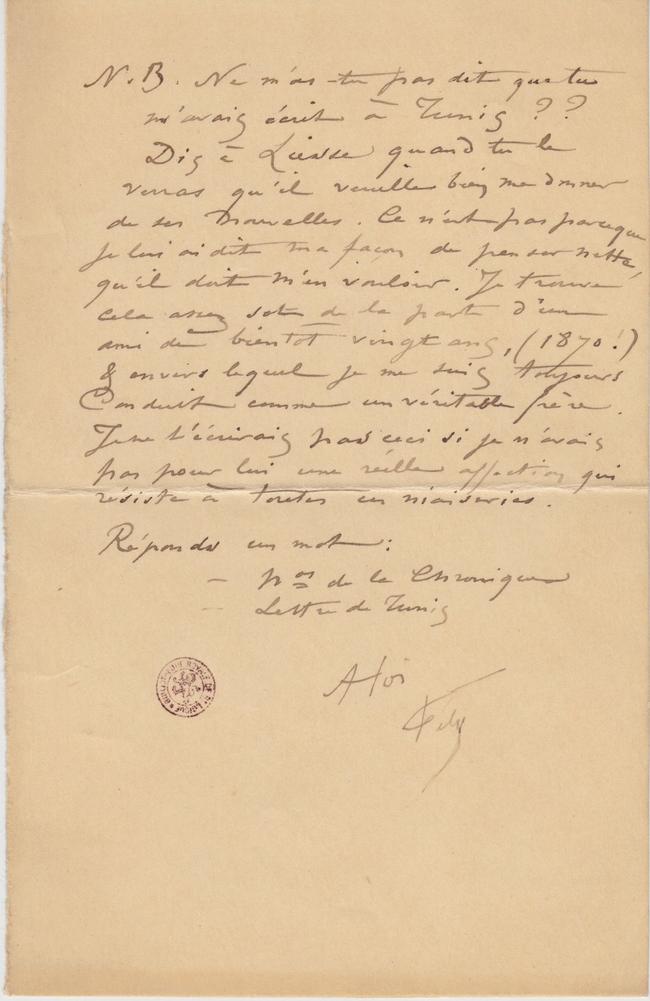 N.B. Ne m'as-tu pas dit que tu
m'avais écrit à Tunis ??
Dis à Liesse quand tu le
verras qu'il veuille bien me donner
de ses nouvelles. Ce n'est pas parceque
je lui ai dit ma façon de penser nette,
qu'il doit m'en vouloir. Je trouve
cela assez sot de la part d'un
ami de bientôt vingt ans, (1870!)
& envers lequel je me suis toujours
conduit comme un véritable frère.
Je ne t'écrirais pas ceci si je n'avais
pas pour lui une réelle affection qui
résiste à toutes ces niaiseries.
Réponds un mot :
– nos de la Chronique
– Lettre de Tunis
A toi
Fély